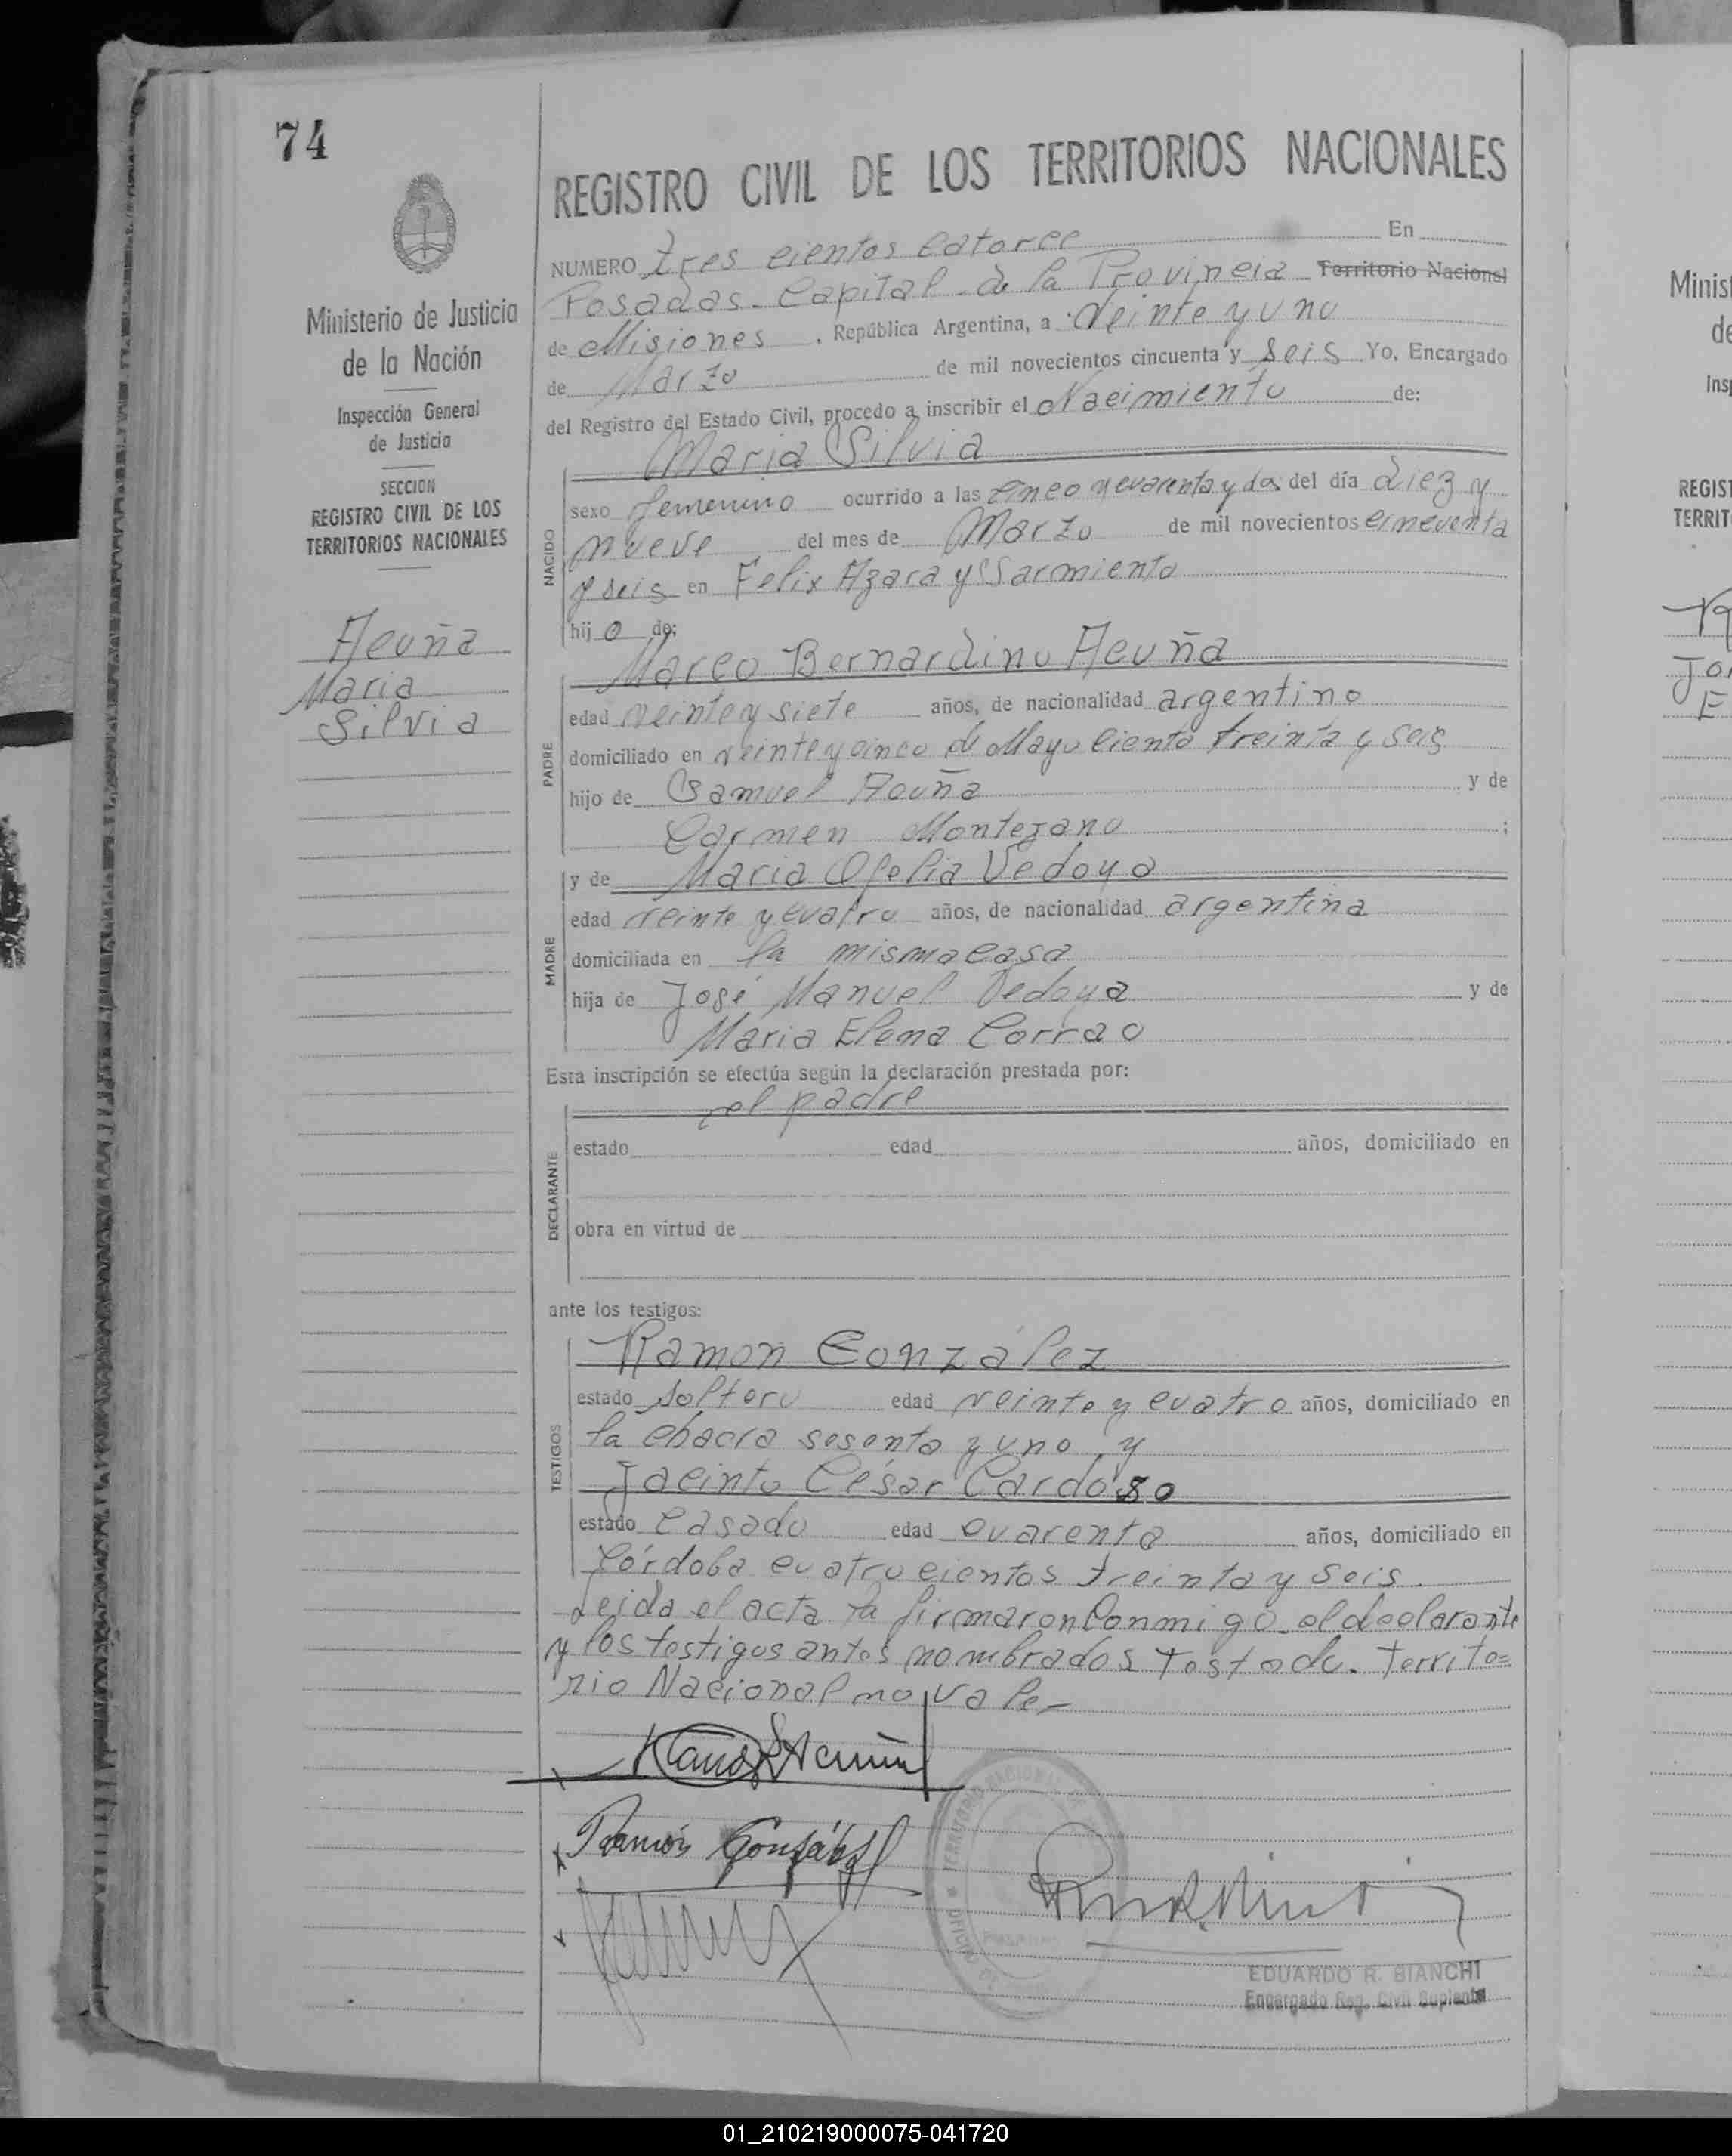 74
REGISTRO CIVIL DE LOS TERRITORIOS NACIONALES
Ministerio de Justicia
de la Nación
Inspección General
de Justicia
SECCION
REGISTRO CIVIL DE LOS
TERRITORIOS NACIONALES
Acuña
Maria
Silvia
NUMERO tres cientos catorce En
Posadas. Capital de la Provincia Territorio Nacional
de Misiones , República Argentina, a veinte y uno
de Marzo de mil novecientos cincuenta y seis Yo, Encargado
del Registro del Estado Civil, procedo a inscribir el Nacimiento de:
Maria Silvia
NACIDO
sexo femenino ocurrido a las cinco y cuarenta y dos del día diez y
nueve del mes de Marzo de mil novecientos cincuenta
y seis en Felix Azara y Sarmiento
hij o de:
Marco Bernardino Acuña
PADRE
edad veinte y siete años, de nacionalidad argentino
domiciliado en veinte y cinco de Mayo ciento treinta y seis
hijo de Samuel Acuña y de
Carmen Montejano ;
y de Maria Ofelia Vedoya
MADRE
edad veinte y cuatro años, de nacionalidad argentina
domiciliada en la misma casa
hija de José Manuel Vedoya y de
Maria Elena Corrao
Esta inscripción se efectúa según la declaración prestada por:
el padre
DECLARANTE
estado edad años, domiciliado en
obra en virtud de
ante los testigos:
Ramon González
TESTIGOS
estado soltero edad veinte y cuatro años, domiciliado en
la chacra sesenta y uno y
Jacinto César Cardoso
estado casado edad cuarenta años, domiciliado en
Córdoba cuatro cientos treinta y seis.
Leida el acta la firmaron conmigo el declarante
y los testigos antes nombrados Testado. Territo=
rio Nacional no vale-
Acuña
Ramón González
TERRITORIO NACIONAL
EDUARDO R. BIANCHI
Encargado Reg. Civil Suplente
Minist
de
Insp
REGIST
TERRIT
01_210219000075-041720